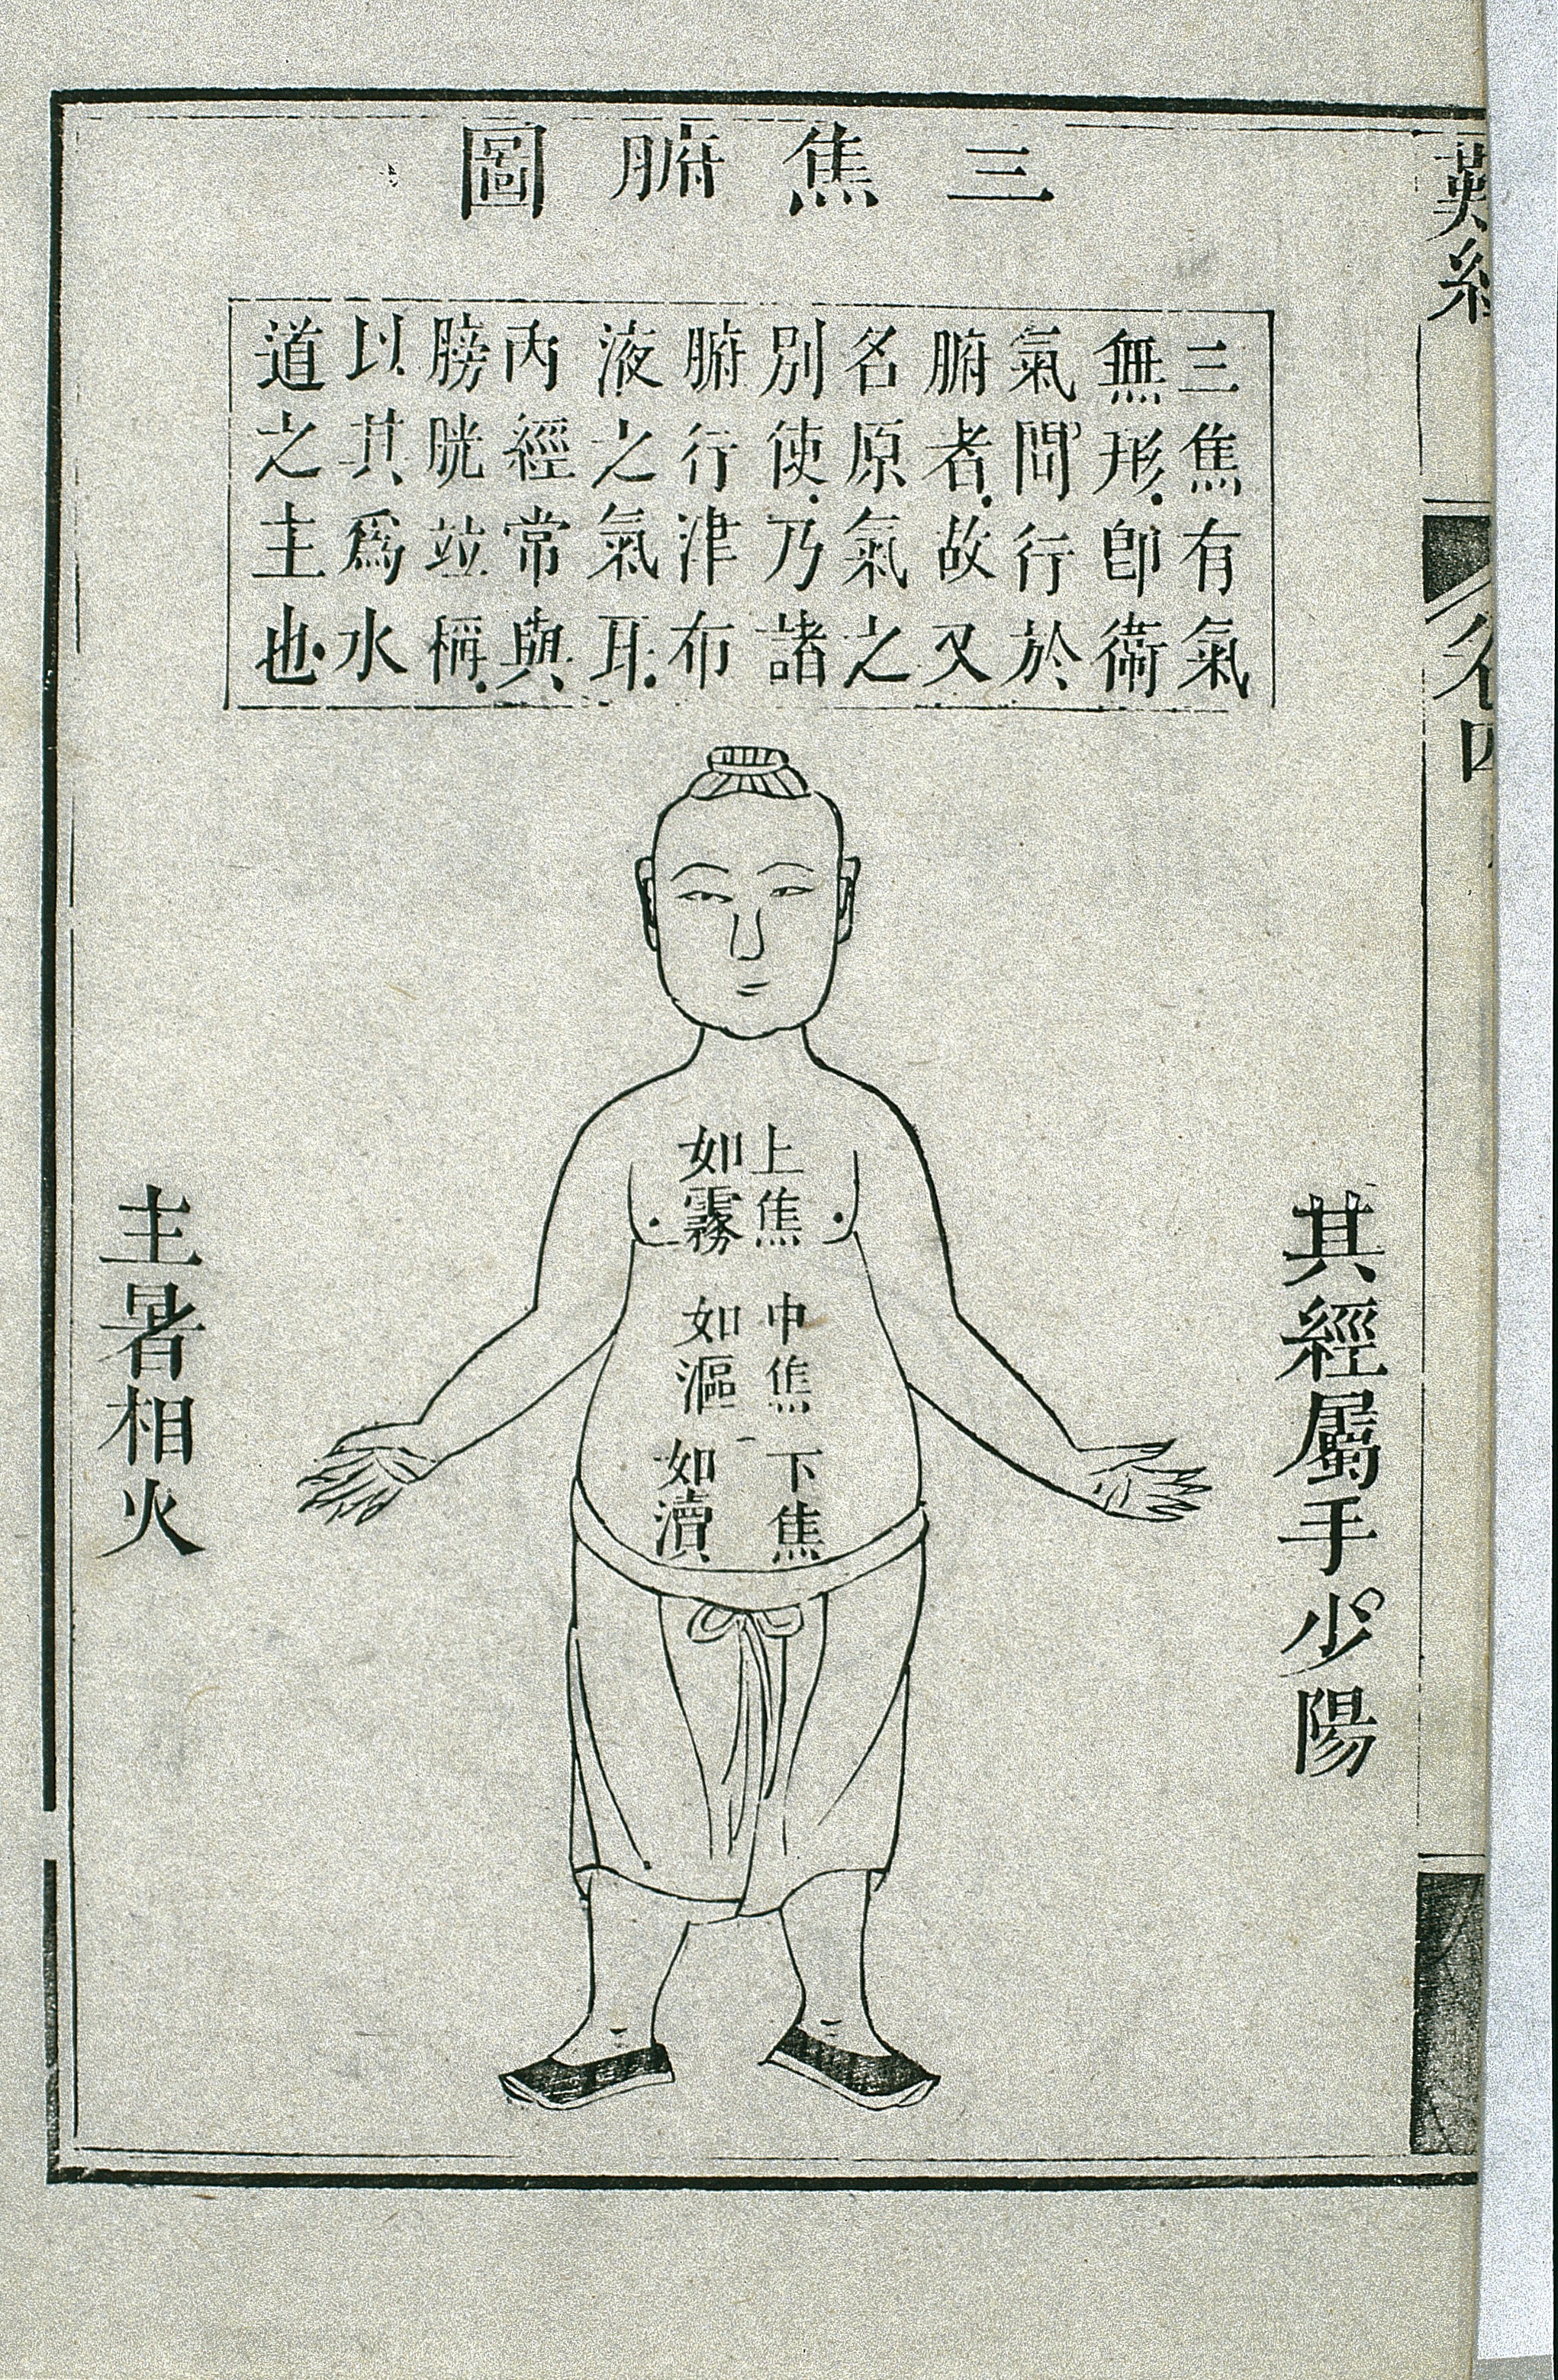 三焦腑圖
三焦有氣
無形即衛
氣間行於
腑者故又
名原氣之
別使乃諸
腑行津布
液之氣耳
丙經常與
膀胱竝稱
以其為水
道之主也
上焦
如霧
中焦
如漚
下焦
如瀆
其經屬手少陽
主暑相火